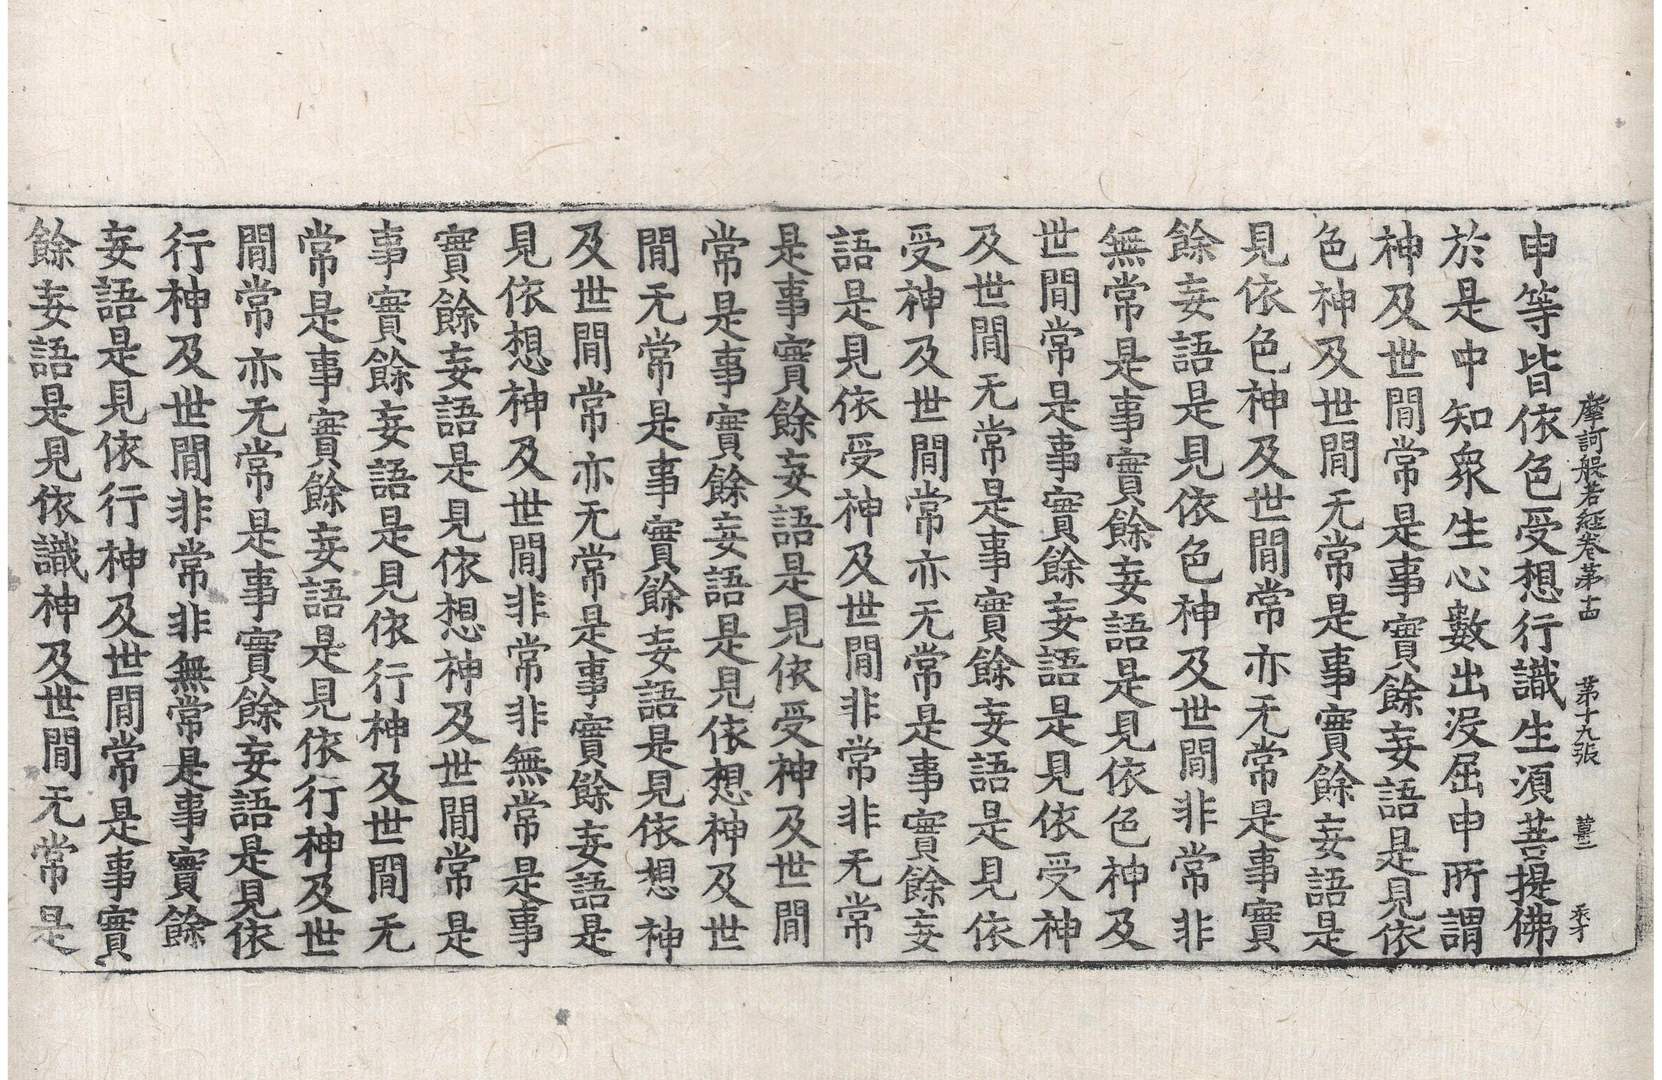 摩訶般若經卷第十四　第十九張
申等皆依色受想行識生須菩提佛
於是中知衆生心數出沒屈申所謂
神及世閒常是事實餘妄語是見依
色神及世閒无常是事實餘妄語是
見依色神及世閒常亦无常是事實
餘妄語是見依色神及世閒非常非
無常是事實餘妄語是見依色神及
世閒常是事實餘妄語是見依受神
及世閒无常是事實餘妄語是見依
受神及世閒常亦无常是事實餘妄
語是見依受神及世閒非常非无常
是事實餘妄語是見依受神及世閒
常是事實餘妄語是見依想神及世
閒无常是事實餘妄語是見依想神
及世閒常亦无常是事實餘妄語是
見依想神及世閒非常非無常是事
實餘妄語是見依想神及世閒常是
事實餘妄語是見依行神及世閒无
常是事實餘妄語是見依行神及世
閒常亦无常是事實餘妄語是見依
行神及世閒非常非無常是事實餘
妄語是見依行神及世閒常是事實
餘妄語是見依識神及世閒无常是